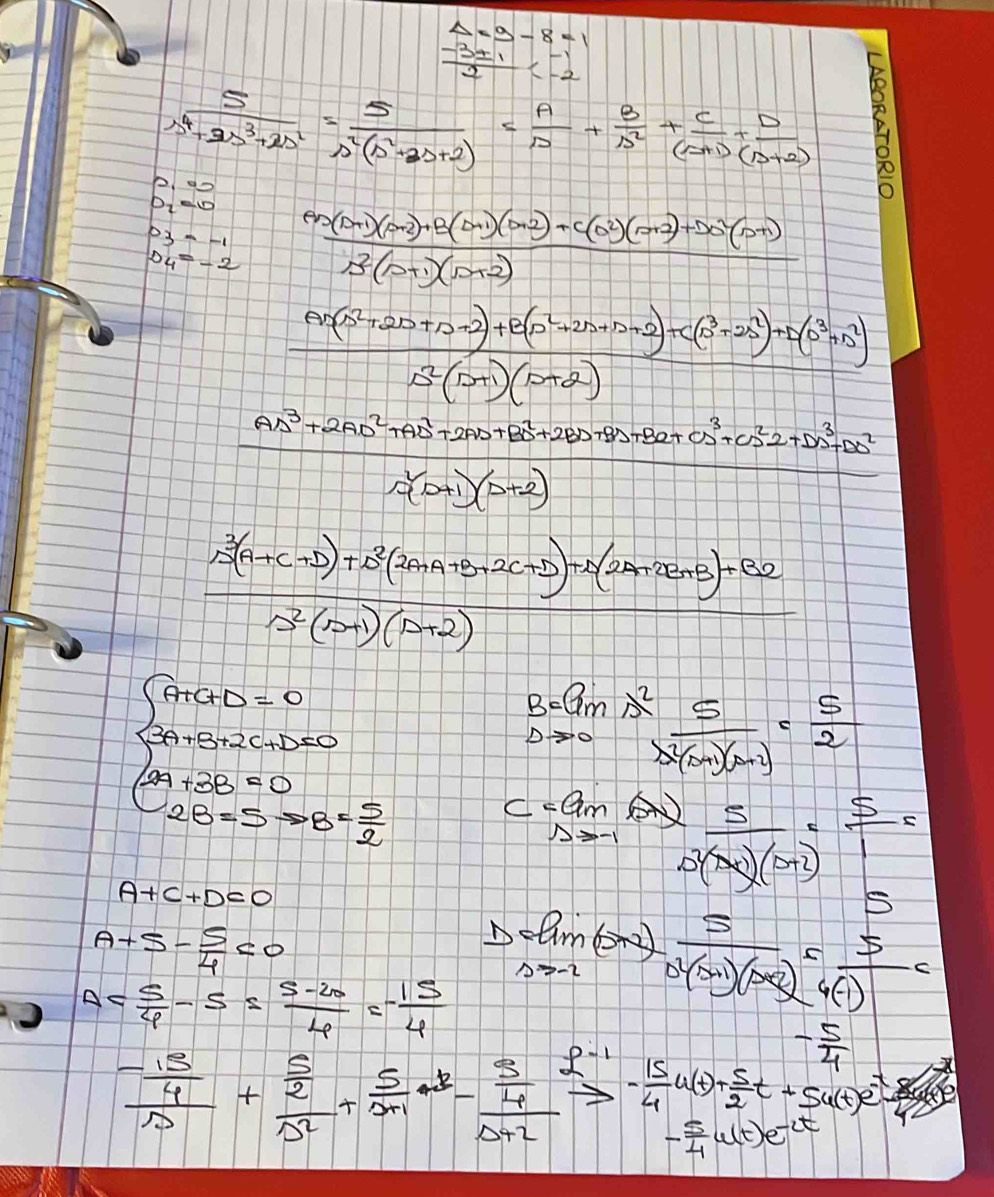 Δ = 9 - 8 = 1
(-3±1)/2 < -1
-2
5/(s⁴+3s³+2s²) = 5/(s²(s²+3s+2)) = A/s + B/s² + C/(s+1) + D/(s+2)
LABORATORIO
p₁ = 0
p₂ = 0
p₃ = -1
p₄ = -2
(As(s+1)(s+2)+B(s+1)(s+2)+C(s²)(s+2)+Ds²(s+1))/(s²(s+1)(s+2))
(As(s²+2s+s+2)+B(s²+2s+s+2)+C(s³+2s²)+D(s³+s²))/(s²(s+1)(s+2))
(As³+2As²+As²+2As+Bs²+2Bs+Bs+B2+Cs³+Cs²2+Ds³+Ds²)/(s²(s+1)(s+2))
(s³(A+C+D)+s²(2A+A+B+2C+D)+s(2A+2B+B)+B2)/(s²(s+1)(s+2))
{ A+C+D = 0
3A+B+2C+D = 0
2A+3B = 0
2B = 5 → B = 5/2
B = lim s→0 s² 5/(s²(s+1)(s+2)) = 5/2
C = lim s→-1 (s+1) 5/(s²(s+1)(s+2)) = 5/1 =
5
A+C+D = 0
A+5-5/4 = 0
A = 5/4 - 5 = (5-20)/4 = -15/4
D = lim s→-2 (s+2) 5/(s²(s+1)(s+2)) = 5/(4(-1)) =
-5/4
(-15/4)/s + (5/2)/s² + 5/(s+1) - (5/4)/(s+2) ℒ⁻¹→ -15/4 u(t) + 5/2 t + 5u(t)e⁻ᵗ
-5/4 u(t)e⁻²ᵗ